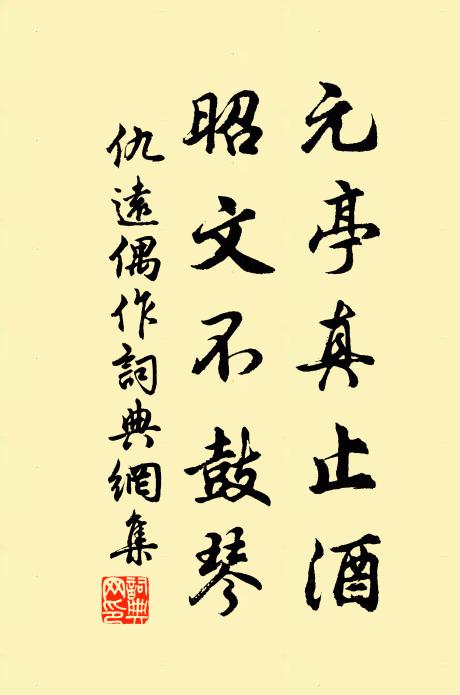 元亭真止酒
昭文不鼓琴
仇遠偶作詞典網集
詞典
网印